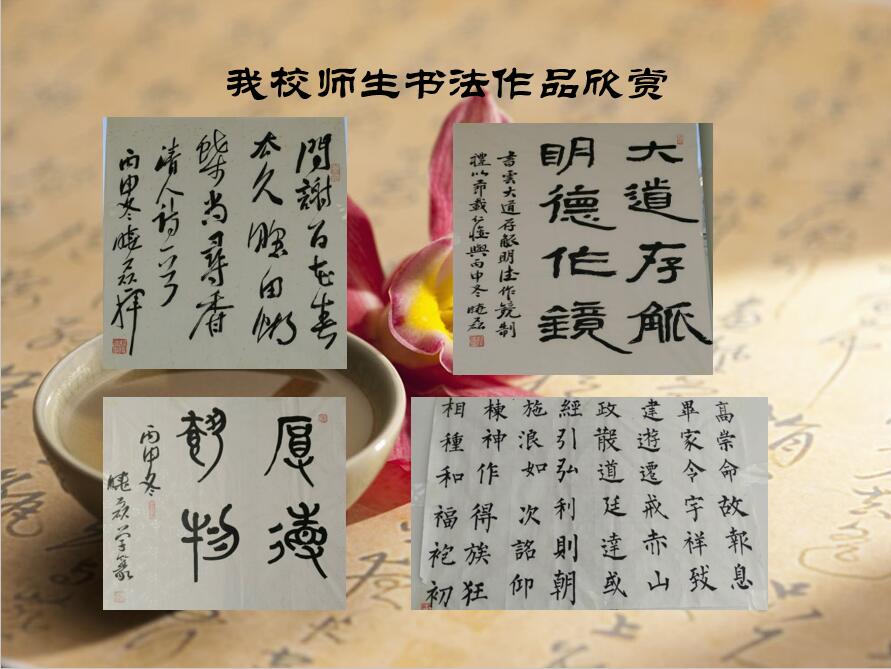 我校师生书法作品欣赏
謝百花春
太久
尚尋香
清人詩一首
丙申冬曉磊揮
大道存觚
明德作鏡
書雲大道存觚明德作鏡制
禮以節載興丙申冬曉磊
厚德
載物
丙申冬
曉磊學篆
高崇命故報息
畢家令宇祥致
建遊遷戒赤山
政散道廷達或
經引弘利則朝
施浪如次詔仰
棟神作得族狂
相種和福袍初